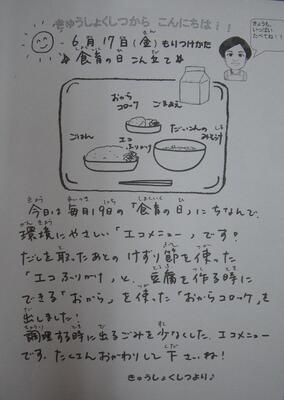 きゅうしょくしつから こんにちは!!
きょうも、
いっぱい
たべてね!!
6月17日(金)もりつけかた
★食育の日こん立て★
おから
コロッケ
ごまあえ
ごはん
エコ
ふりかけ
だいこんの
みそしる
今日は毎月19日の「食育の日」にちなんで、
環境にやさしい「エコメニュー」です。
だしを取ったあとのけずり節を使った
「エコふりかけ」と、豆腐を作る時に
できる「おから」を使った「おからコロッケ」を
出しました!
調理する時に出るごみを少なくした、エコメニュー
です。たくさんおかわりして下さいね!
きゅうしょくしつより♪